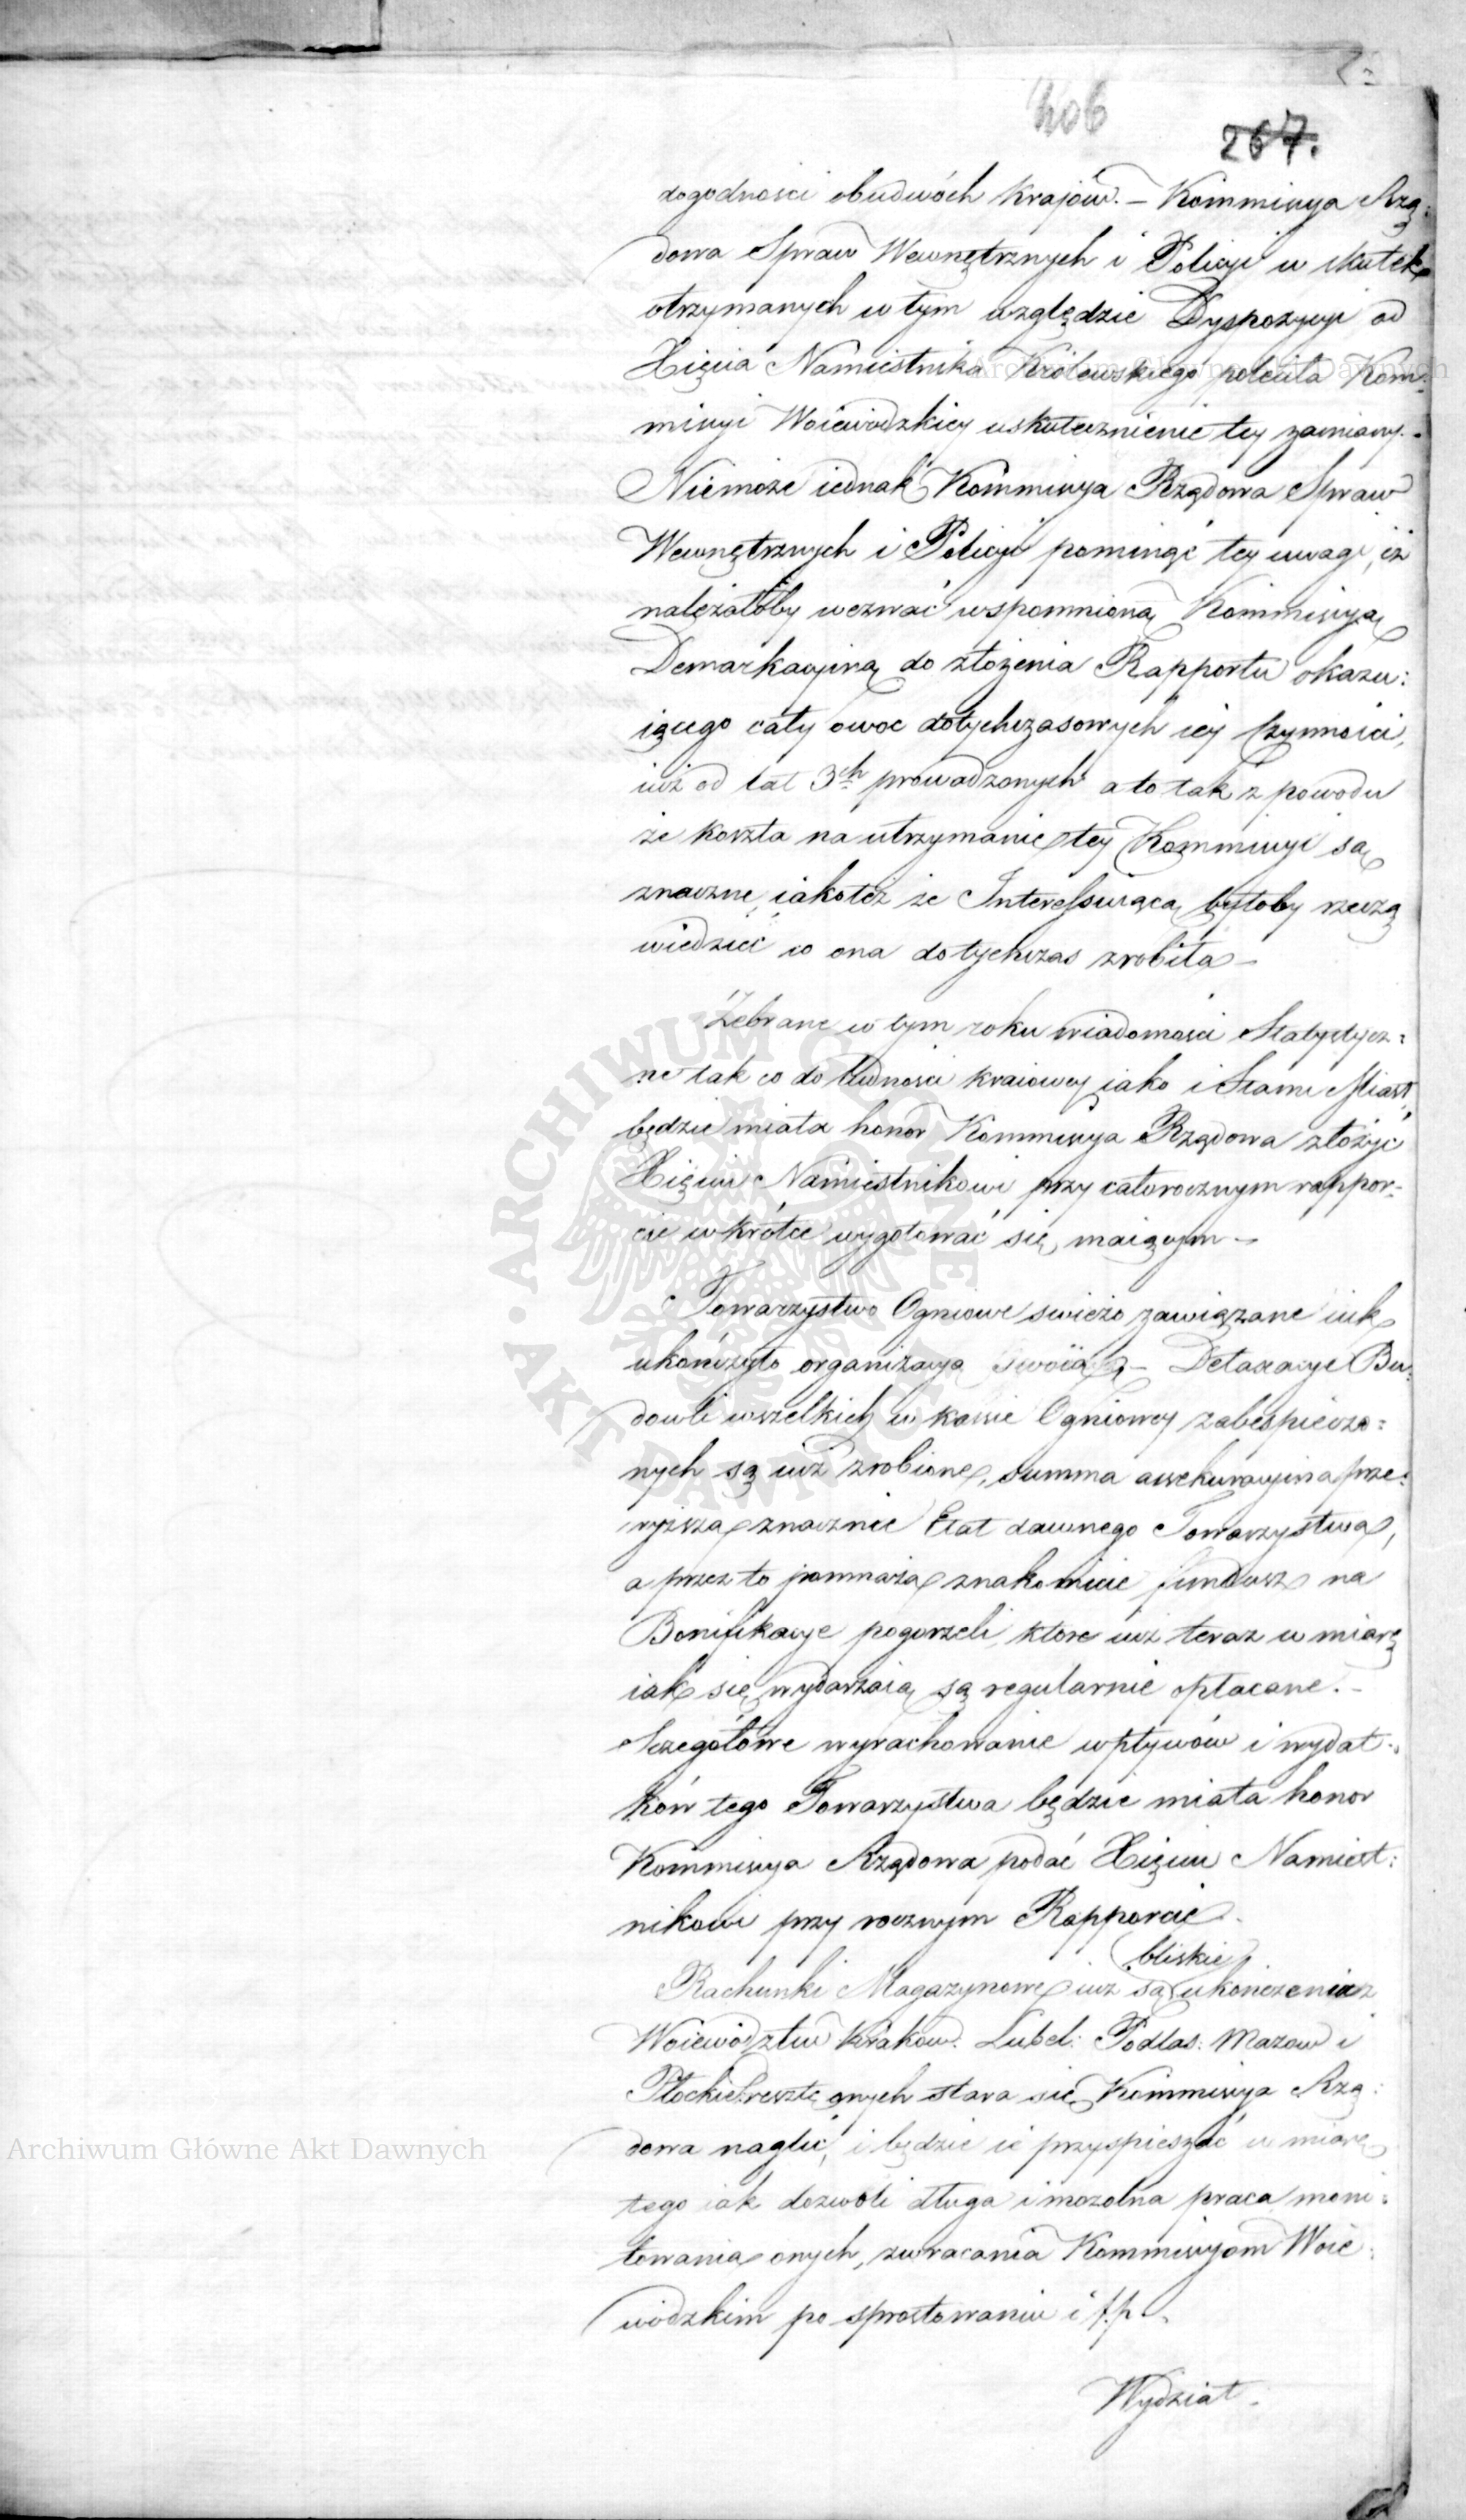 406
267.
dogodności obudwóch Krajów. – Kommissya Rzą:
dowa Spraw Wewnętrznych i Policyi w skutek
otrzymanych w tym względzie Dyspozycyi od
Xięcia Namiestnika Królewskiego poleciła Kom:
missyi Woiewodzkiey uskutecznienie tey zamiany. -
Niemoże iednak Kommissya Rządowa Spraw
Wewnętrznych i Policyi pominąć tey uwagi, iż
należałoby wezwać wspomnioną Kommissyą
Demarkacyiną do złożenia Rapportu okazu:
iącego cały owoc dotychczasowych iey Czynności,
iuż od lat 3ch prowadzonych a to tak z powodu
że koszta na utrzymanie tey Kommissyi są
znaczne, iakoteż że Interessuiącą byłoby rzeczą
wiedzieć co ona dotychczas zrobiła –
Zebrane w tym roku wiadomości Statystycz:
ne tak co do ludności kraiowey iako i Stanu Miast,
będzie miała honor Kommissya Rządowa złożyć
Xięciu Namiestnikowi przy całorocznym rappor-
cie wkrótce wygotować się maiącym –
Towarzystwo Ogniowe świeżo zawiązane iuż
ukończyło organizacyą swoią – Detaxacye Bu:
dowli wszelkich w kassie Ogniowey zabespieczo:
nych są iuż zrobione, summa assekuracyina prze:
wyższa znacznie Etat dawnego Towarzystwa,
a przez to pomnaża znakomicie fundusz na
Bonifikacye pogorzeli, które iuż teraz w miarę
iak się wydarzaią są regularnie opłacane. –
Szczegółowe wyrachowanie wpływów i wydat-
ków tego Towarzystwa będzie miała honor
Kommissya Rządowa podać Xięciu Namiest:
nikowi przy rocznym Rapporcie.
bliskie
Rachunki Magazynowe iuż są ukończenia z
Woiewództw Krakow. Lubel: Podlas: Mazow i
Płockie resztę onych stara się Kommissya Rzą:
dowa naglić, i będzie ie przyspieszać w miarę
tego iak dozwoli długa i mozolna praca moni:
towania onych, zwracania Kommissyom Woie:
wódzkim po sprostowaniu i t.p.
Wydział.
Archiwum Główne Akt Dawnych
ARCHIWUM GŁÓWNE AKT DAWNYCH
Archiwum Główne Akt Dawnych